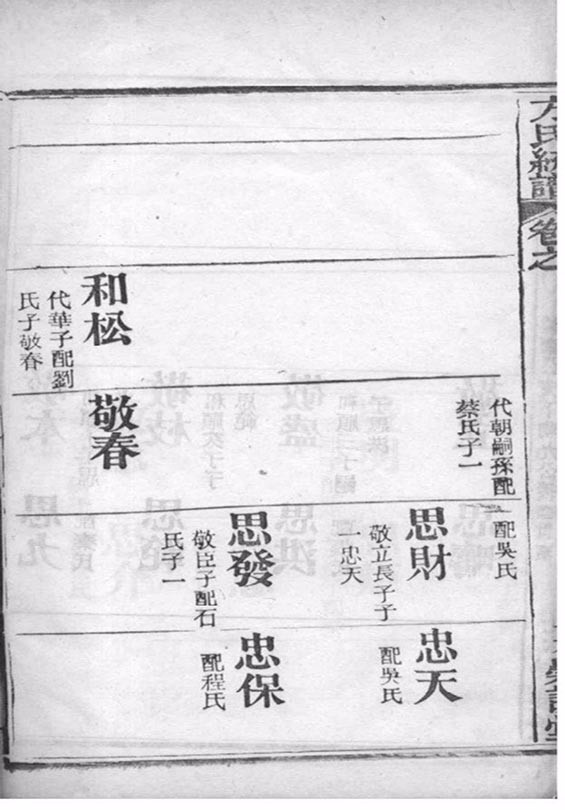 方氏統譜
卷之
和松
代華子配劉
氏子敬春
代朝嗣孫配
蔡氏子一
敬春
配吳氏
思財
敬立長子子
一忠天
思發
敬臣子配石
氏子一
忠天
配吳氏
忠保
配程氏